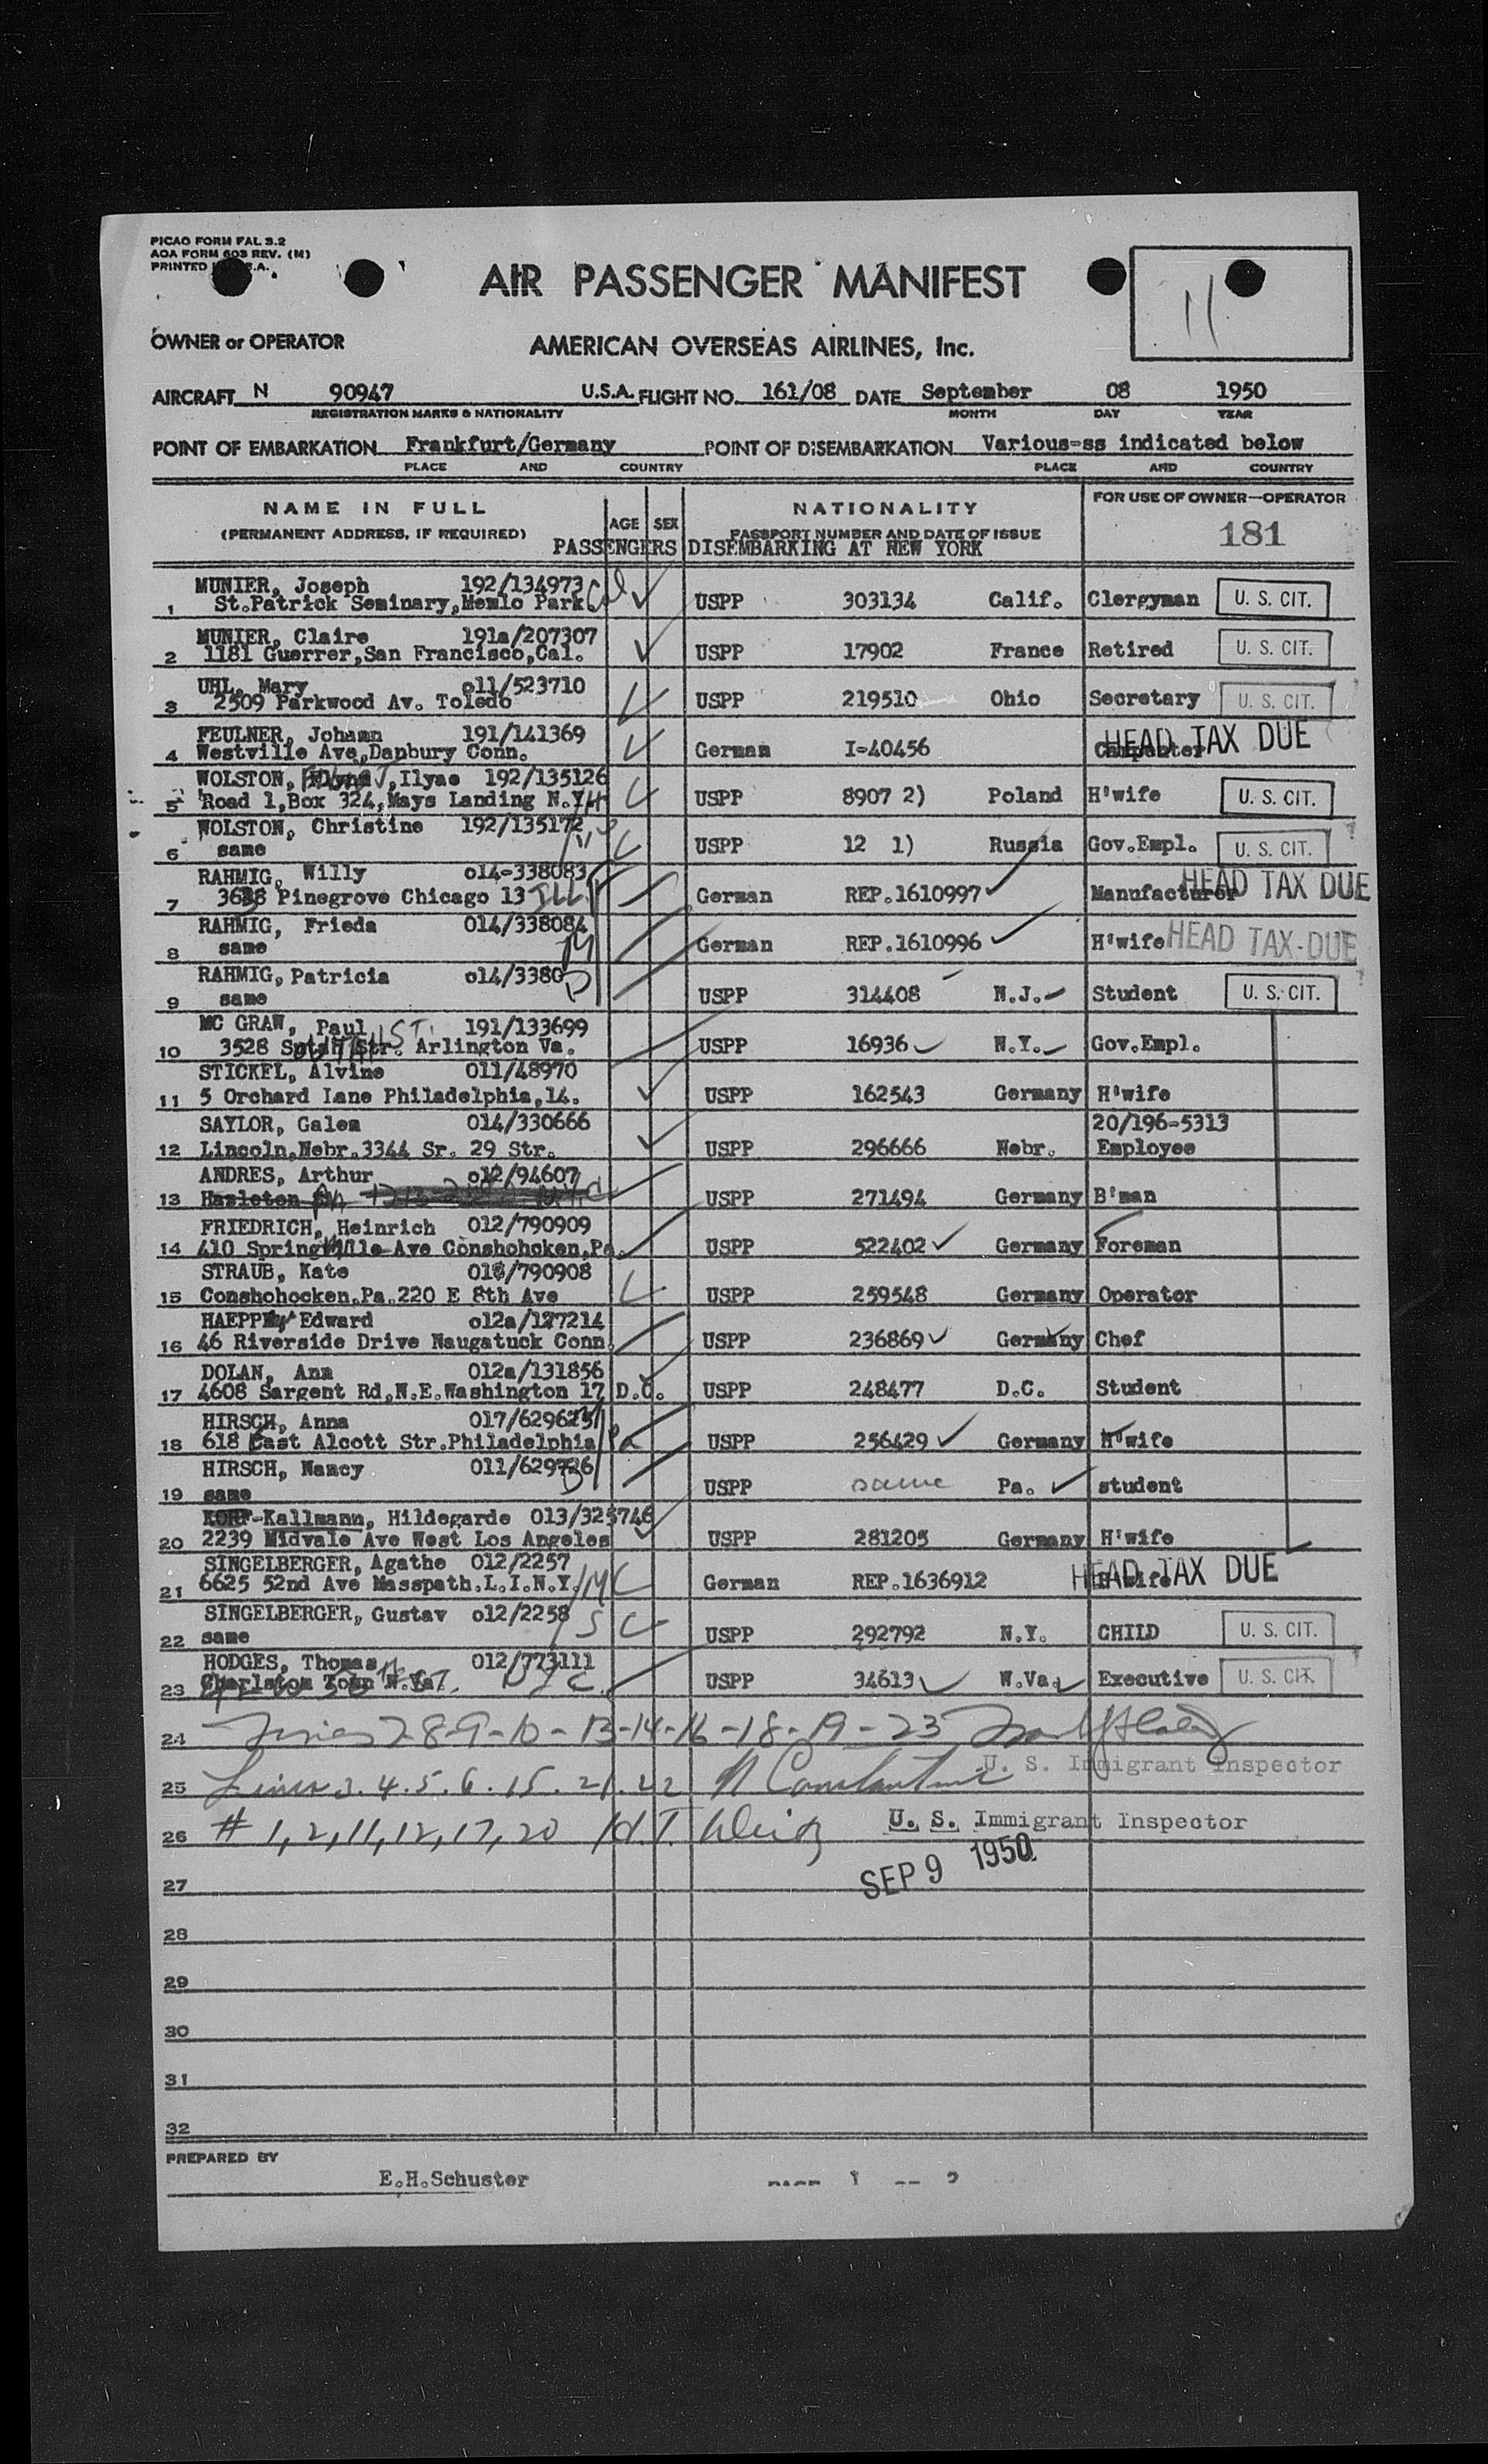 PICAO FORM FAL 3.2
AOA FORM 603 REV. (M)
PRINTED U.S.A.
AIR PASSENGER MANIFEST
11
OWNER or OPERATOR AMERICAN OVERSEAS AIRLINES, Inc.
AIRCRAFT N 90947 U.S.A. FLIGHT NO. 161/08 DATE September 08 1950
REGISTRATION MARKS & NATIONALITY MONTH DAY YEAR
POINT OF EMBARKATION Frankfurt/Germany POINT OF DISEMBARKATION Various-ss indicated below
PLACE AND COUNTRY PLACE AND COUNTRY
NAME IN FULL AGE SEX NATIONALITY FOR USE OF OWNER—OPERATOR
(PERMANENT ADDRESS, IF REQUIRED) PASSPORT NUMBER AND DATE OF ISSUE 181
PASSENGERS DISEMBARKING AT NEW YORK
MUNIER, Joseph 192/134973
1 St.Patrick Seminary,Menlo Park Cal USPP 303134 Calif. Clergyman U. S. CIT.
MUNIER, Claire 191a/207307
2 1181 Guerrer,San Francisco,Cal. USPP 17902 France Retired U. S. CIT.
UHL, Mary o11/523710
3 2509 Parkwood Av. Toledo USPP 219510 Ohio Secretary U. S. CIT.
FEULNER, Johann 191/141369
4 Westville Ave,Danbury Conn. German I-40456 Carpenter HEAD TAX DUE
WOLSTON, Ilyae 192/135126
5 Road 1,Box 324,Mays Landing N.Y. USPP 8907 2) Poland H'wife U. S. CIT.
WOLSTON, Christine 192/135172
6 same USPP 12 1) Russia Gov.Empl. U. S. CIT.
RAHMIG, Willy o14-338083
7 3638 Pinegrove Chicago 13 ILL. German REP.1610997 Manufacturer HEAD TAX DUE
RAHMIG, Frieda 014/338084
8 same M German REP.1610996 H'wife HEAD TAX DUE
RAHMIG, Patricia o14/3380
9 same D USPP 314408 N.J. Student U. S. CIT.
MC GRAW, Paul 191/133699
10 3528 Str. ST. Arlington Va. USPP 16936 N.Y. Gov.Empl.
STICKEL, Alvine 011/48970
11 5 Orchard Lane Philadelphia,14. USPP 162543 Germany H'wife
SAYLOR, Galen 014/330666 20/196-5313
12 Lincoln,Nebr.3344 Sr. 29 Str. USPP 296666 Nebr. Employee
ANDRES, Arthur o12/94607
13 Hazleton USPP 271494 Germany B'man
FRIEDRICH, Heinrich 012/790909
14 410 Springmille Ave Conshohcken,Pa. USPP 522402 Germany Foreman
STRAUB, Kate 018/790908
15 Conshohocken,Pa.220 E 8th Ave USPP 259548 Germany Operator
HAEPP Edward o12a/127214
16 46 Riverside Drive Naugatuck Conn. USPP 236869 Germany Chef
DOLAN, Ann 012a/131856
17 4608 Sargent Rd,N.E.Washington 17 D.C. USPP 248477 D.C. Student
HIRSCH, Anna 017/62962 M
18 618 East Alcott Str.Philadelphia Pa USPP 256429 Germany H'wife
HIRSCH, Nancy 011/629726 D
19 same USPP same Pa. student
KORF-Kallmann, Hildegarde 013/325746
20 2239 Midvale Ave West Los Angeles USPP 281205 Germany H'wife
SINGELBERGER, Agathe 012/2257
21 6625 52nd Ave Masspath.L.I.N.Y. M German REP.1636912 H'wife HEAD TAX DUE
SINGELBERGER, Gustav o12/2258
22 same S USPP 292792 N.Y. CHILD U. S. CIT.
HODGES, Thomas 012/773111
23 Charlston Town W.Va. USPP 34613 W.Va. Executive U. S. CIT.
24 Lines 7-8-9-10-13-14-16-18-19-23
U. S. Immigrant Inspector
25 Lines 3.4.5.6.15.21.22 N Constantine
26 # 1,2,11,12,17,20 H.T. U. S. Immigrant Inspector
SEP 9 1950
27
28
29
30
31
32
PREPARED BY
E.H.Schuster PAGE 1 -- 2